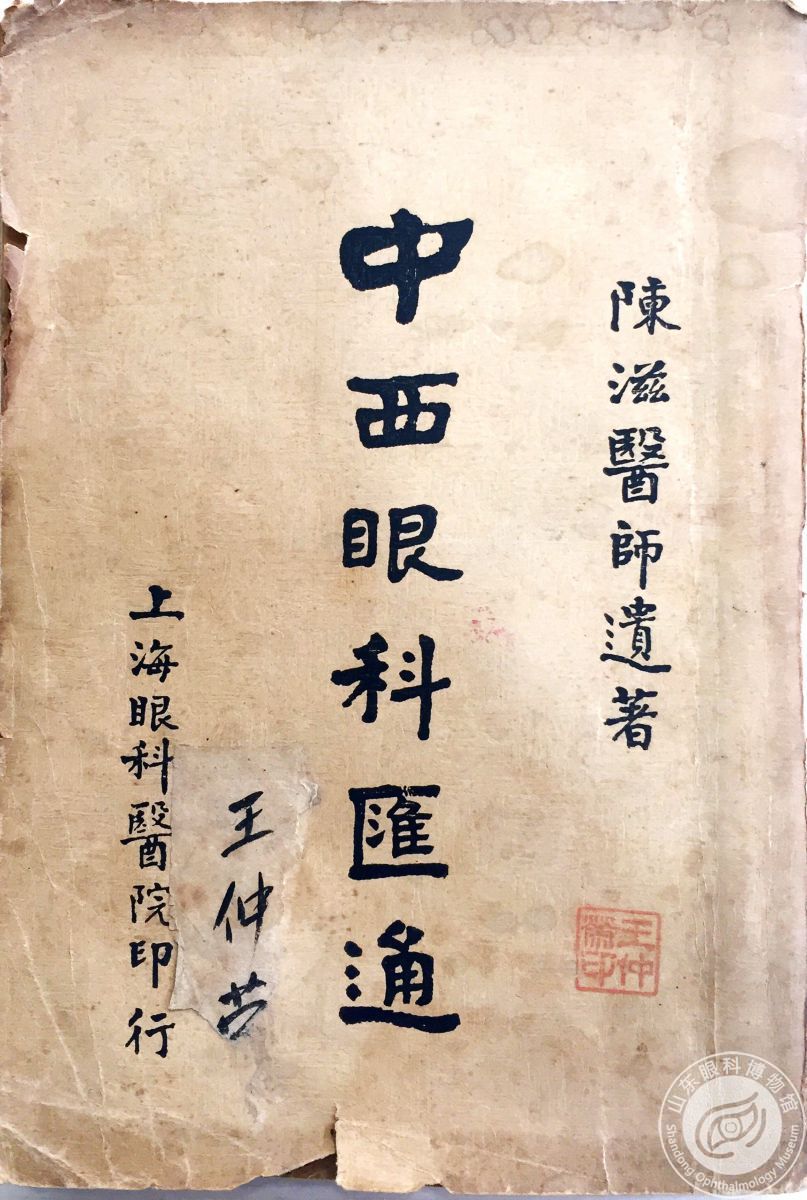 陳滋醫師遺著
中西眼科匯通
王仲
上海眼科醫院印行
王仲
印
山东眼科博物馆
Shandong Ophthalmology Museum